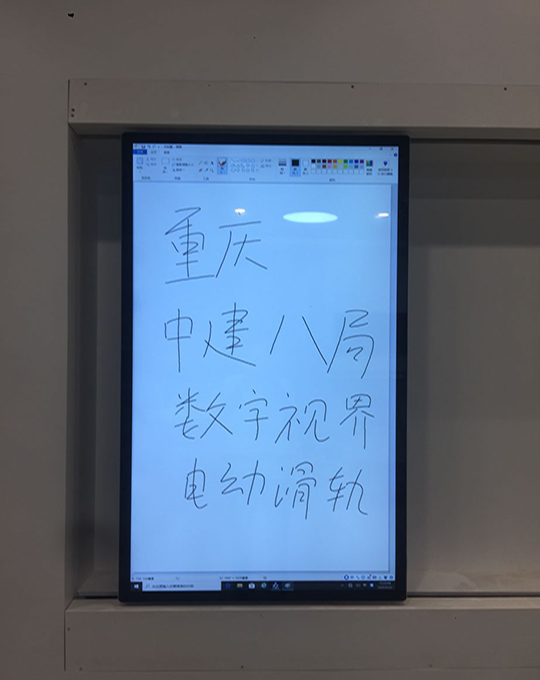 重庆
中建八局
数字视界
电动滑轨